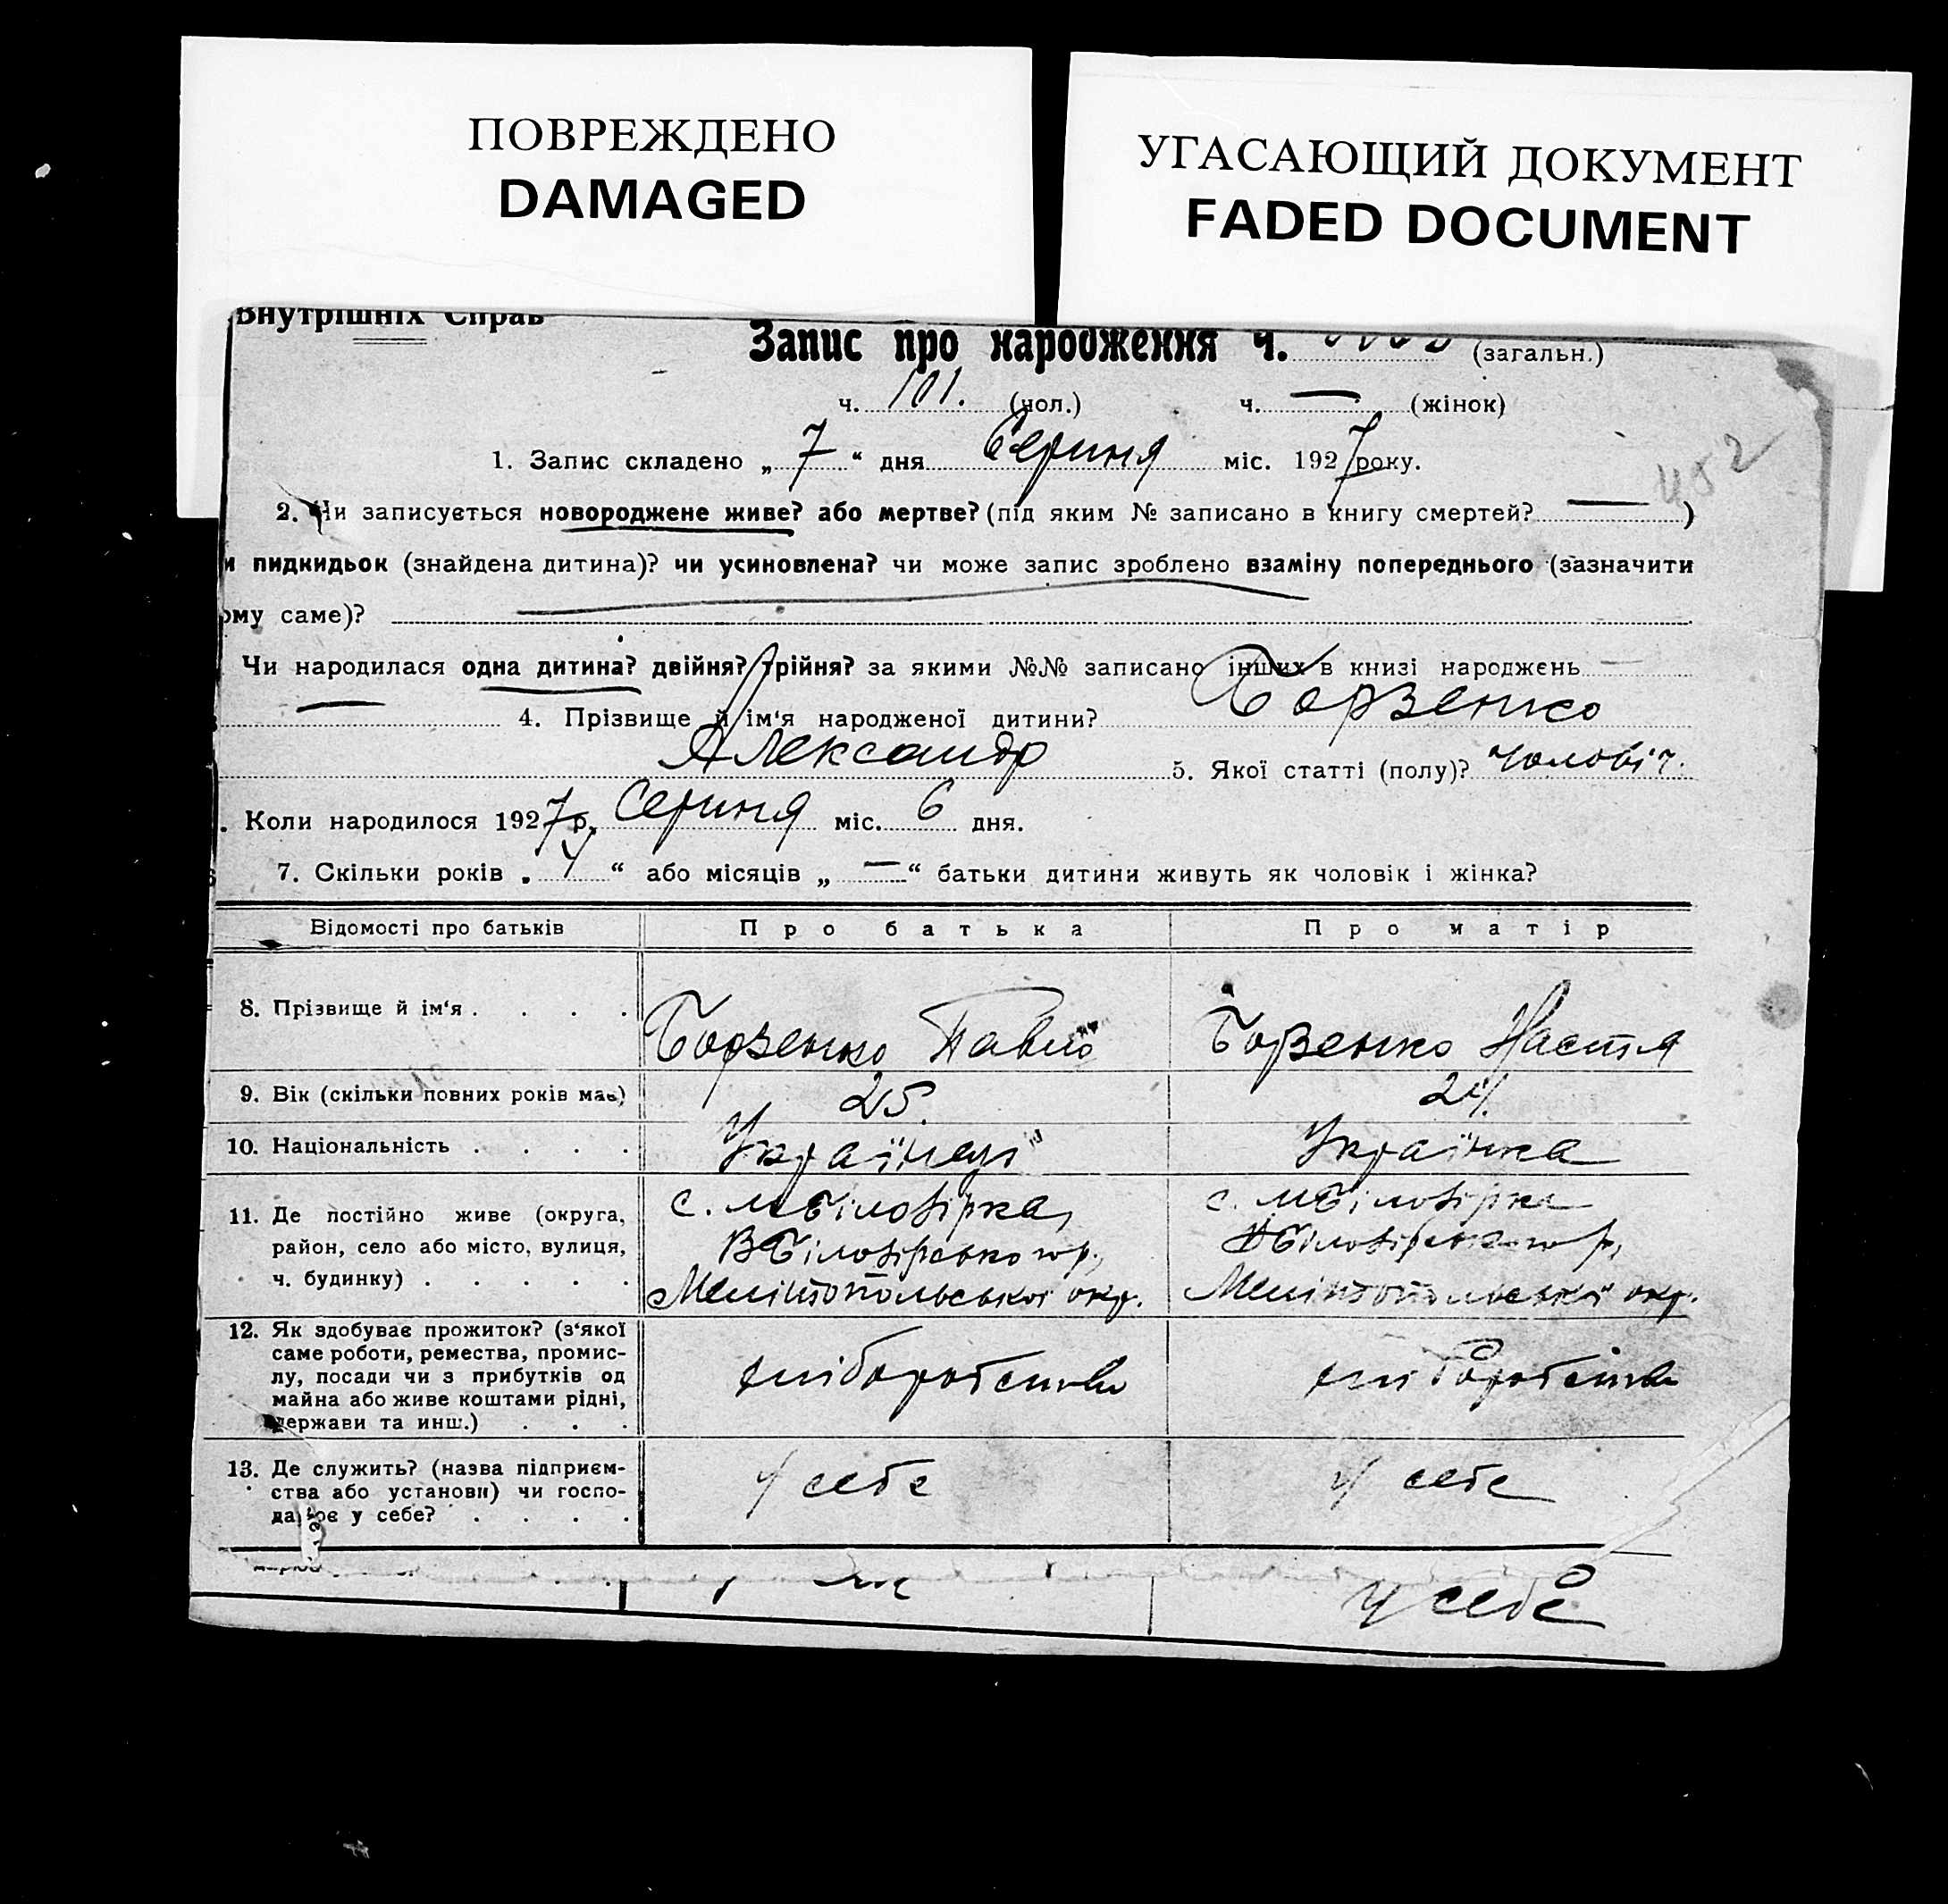 ПОВРЕЖДЕНО
DAMAGED
УГАСАЮЩИЙ ДОКУМЕНТ
FADED DOCUMENT
Внутрішніх Справ
Запис про народження ч. (загальн.)
ч. 101. (чол.) ч. — (жінок)
1. Запис складено „ 7 “ дня Серпня міс. 1927 року.
452
2. Чи записується новороджене живе? або мертве? (під яким № записано в книгу смертей? — )
и пидкидьок (знайдена дитина)? чи усиновлена? чи може запис зроблено взаміну попереднього (зазначити
ому саме)?
Чи народилася одна дитина? двійня? трійня? за якими №№ записано інших в книзі народжень —
— 4. Прізвище й ім‘я народженої дитини? Борзенко
Александр 5. Якої статті (полу)? чоловіч.
. Коли народилося 1927 р. Серпня міс. 6 дня.
7. Скільки років „ 4 “ або місяців „ — “ батьки дитини живуть як чоловік і жінка?
Відомості про батьків Про батька Про матір
8. Прізвище й ім‘я . . . . Борзенко Павло Борзенко Настя
9. Вік (скільки повних років має) 25. 24.
10. Національність . . . . Українец Українка
11. Де постійно живе (округа, с. МБілозірка, с. МБілозірка
район, село або місто, вулиця, ВБілозірського р, ВБілозірського р,
ч. будинку) . . . . . Мелітопольської окр. Мелітопольської окр.
12. Як здобуває прожиток? (з‘якої
саме роботи, ремества, промис-
лу, посади чи з прибутків од хліборобством хліборобством
майна або живе коштами рідні,
держави та инш.) . . .
13. Де служить? (назва підприєм-
ства або установи) чи госпо- у себе у себе
дарює у себе? . . . .
у себе